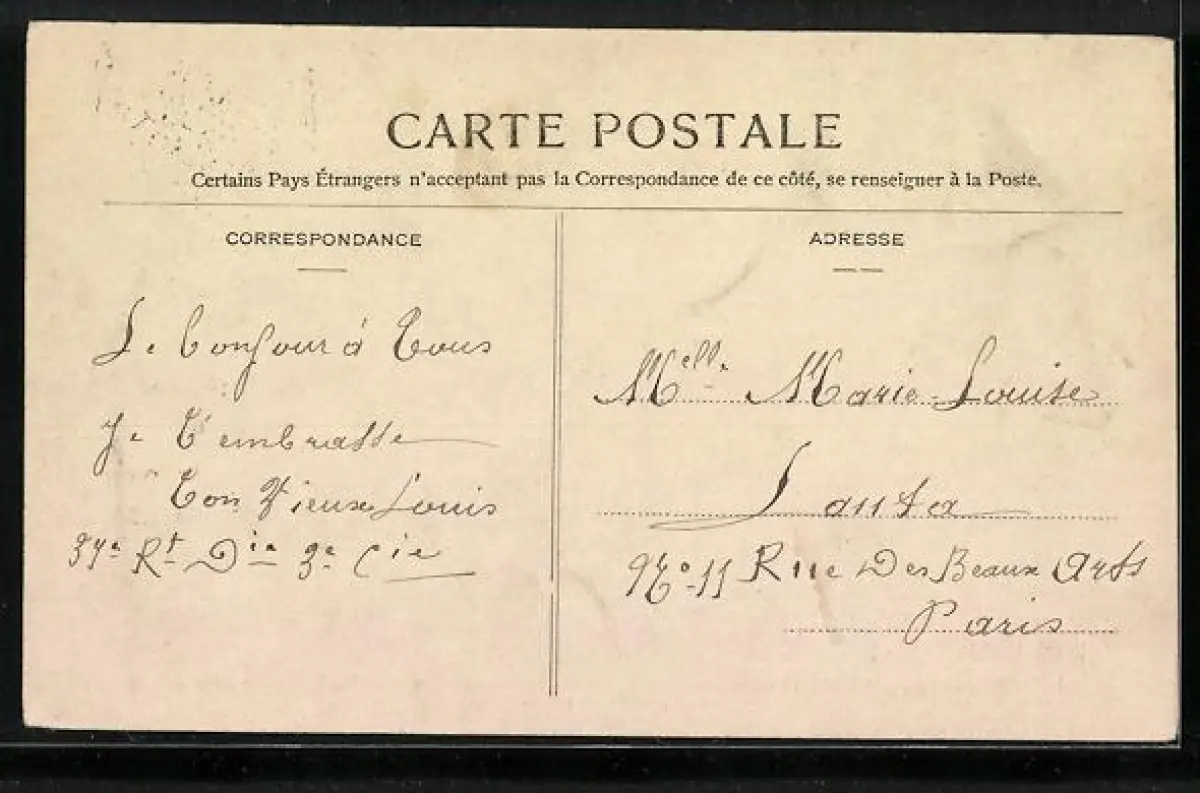 CARTE POSTALE
Certains Pays Étrangers n'acceptant pas la Correspondance de ce côté, se renseigner à la Poste.
CORRESPONDANCE
Le bonjour à Tous
Je T'embrasse
Ton Vieux Louis
37e Rt Die 3e Cie
ADRESSE
Melle Marie-Louise
Lanta
No 11 Rue Des Beaux Arts
Paris